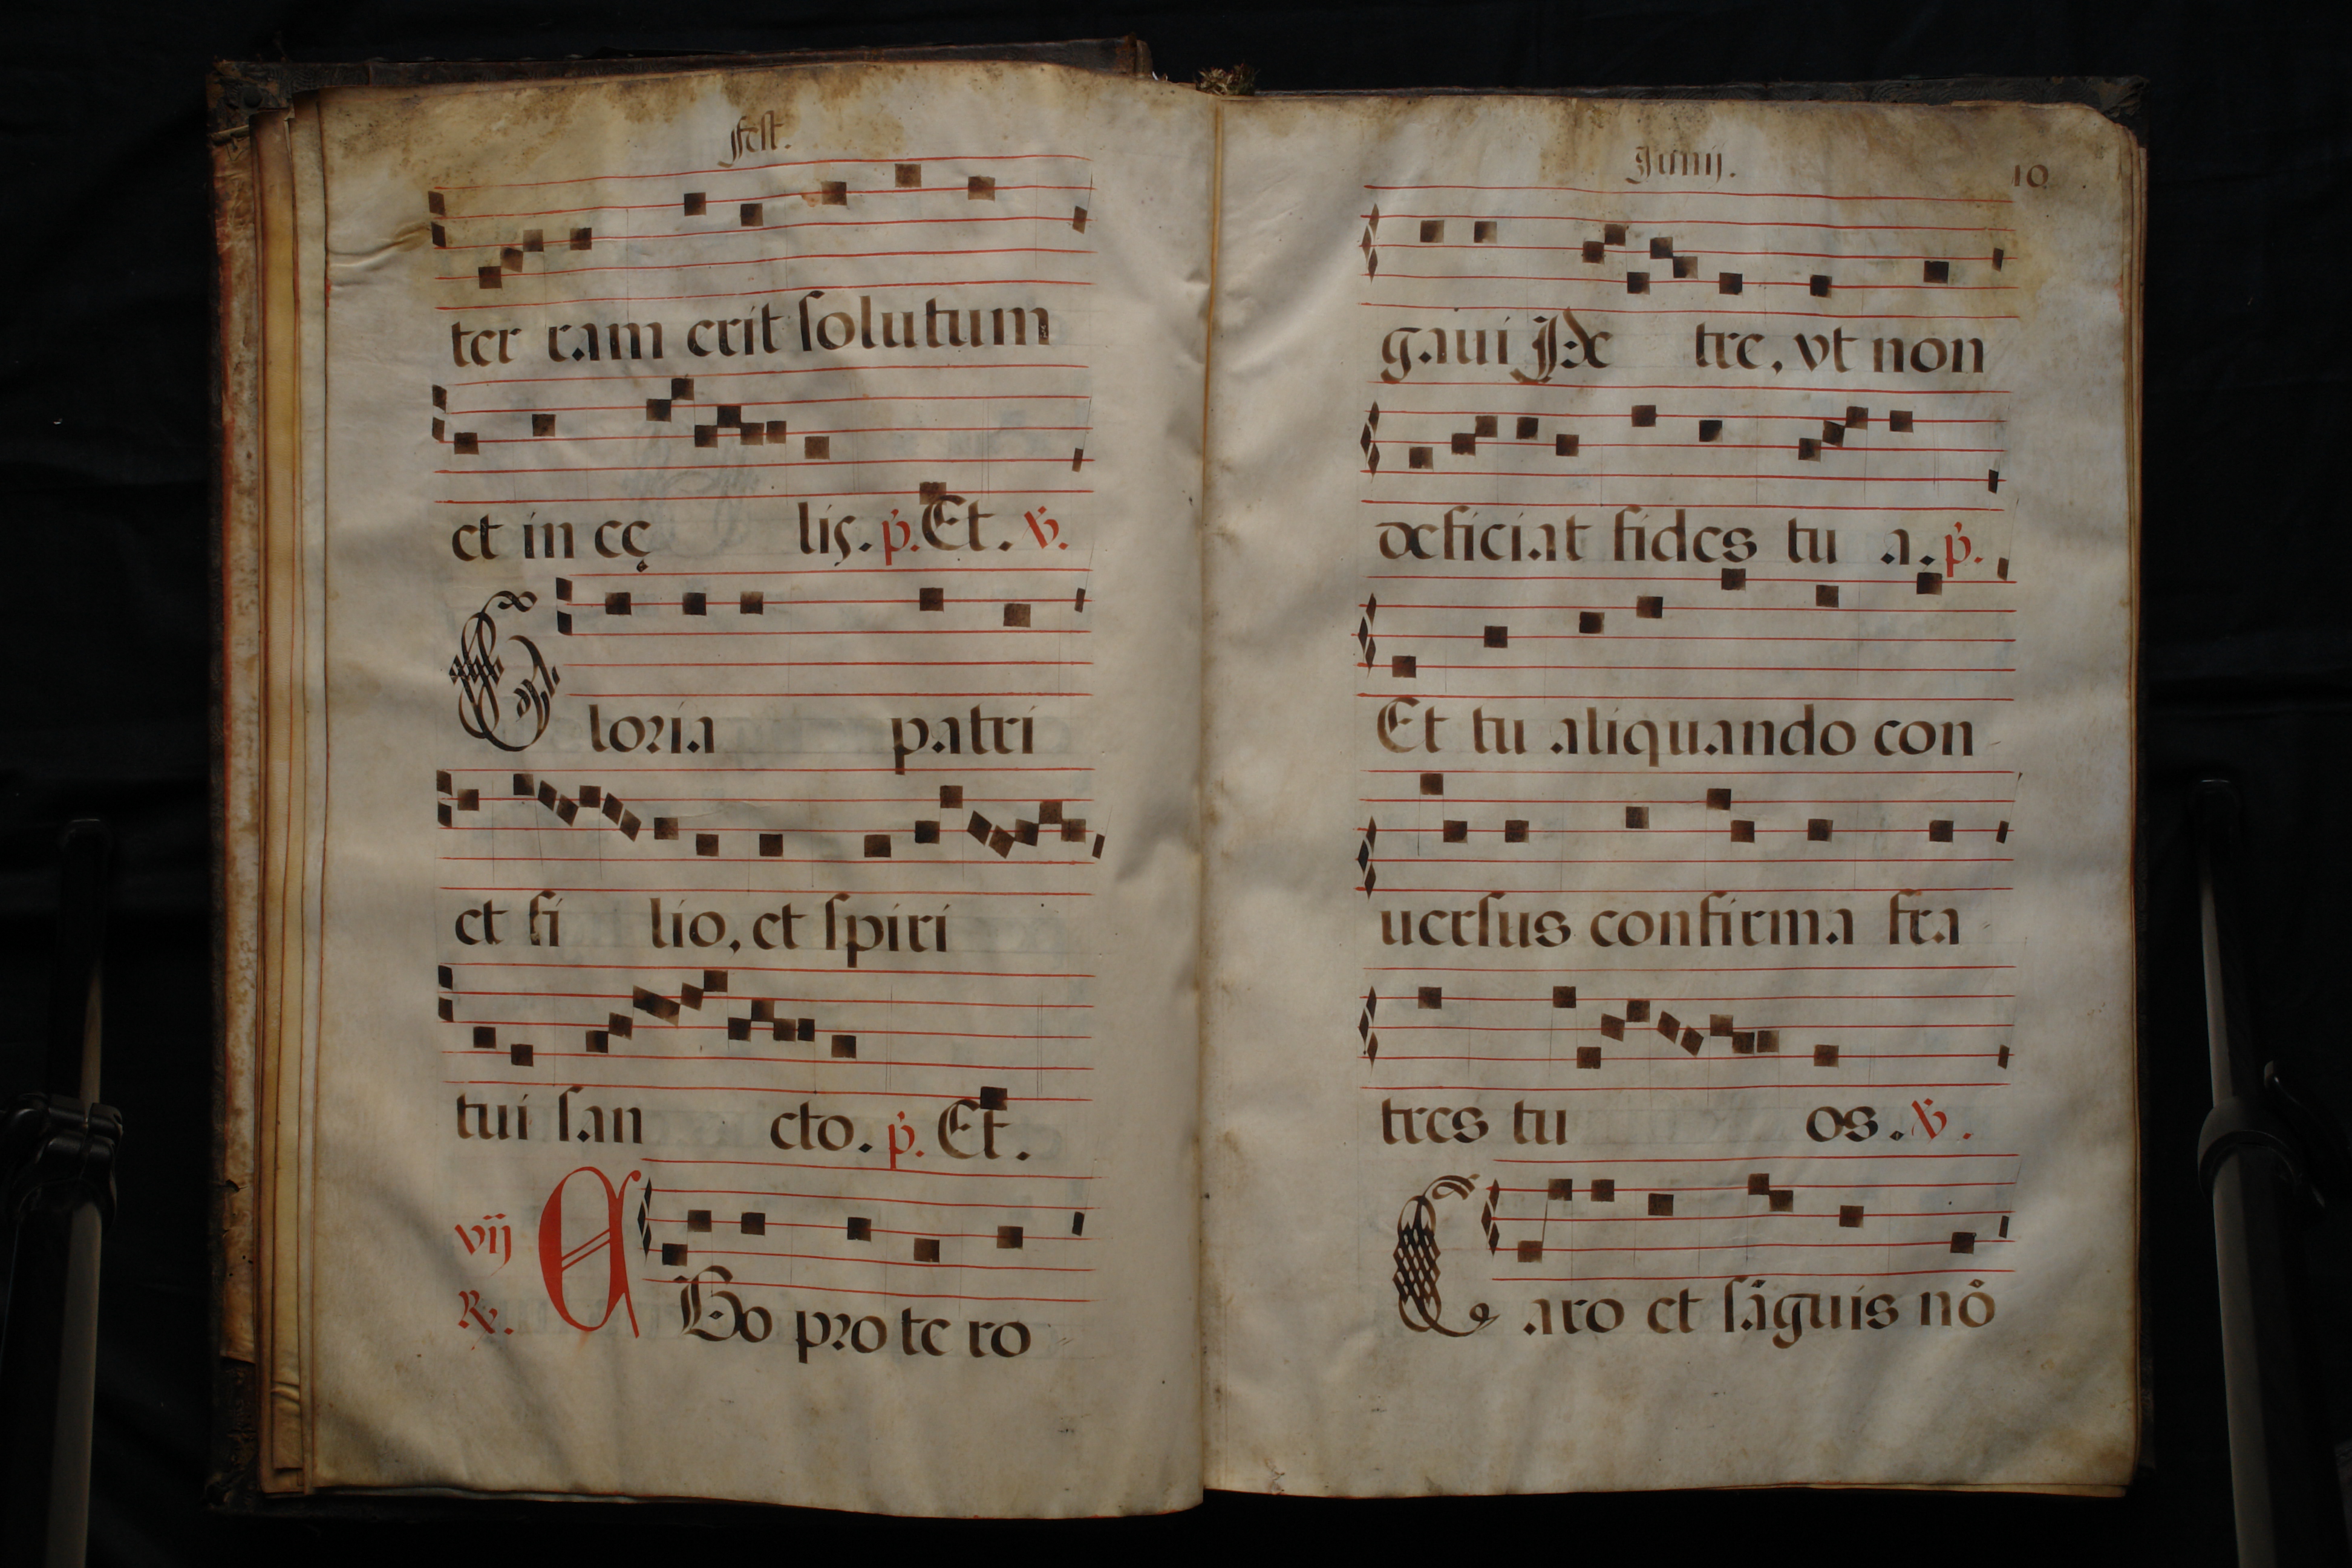 Fest.
ter ram erit solutum
et in cę lis. p̃. Et. ℣.
Gloria patri
et fi lio, et spiri
tui san cto. p̃. Et.
vij
℟. EGo pro te ro
Junij. 10
gaui Pe tre, vt non
deficiat fides tu a. p̃.
Et tu aliquando con
uersus confirma fra
tres tu os. ℣.
Caro et sãguis nõ